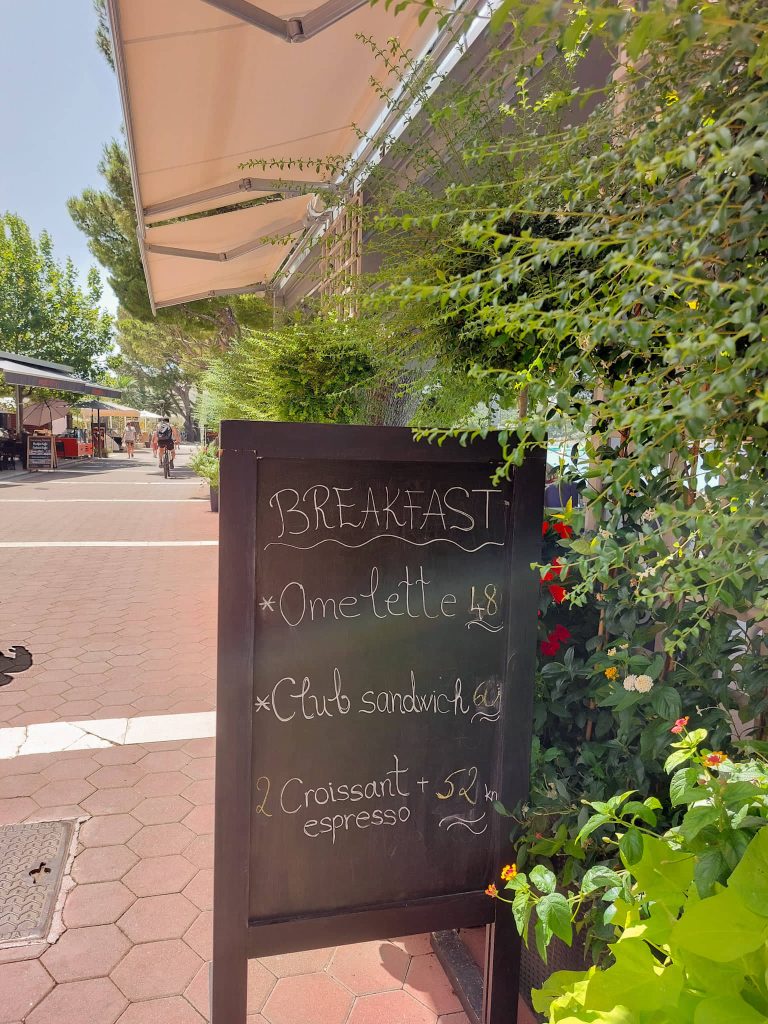 BREAKFAST
*Omelette 48
*Club sandwich
2 Croissant + 52 kn
espresso